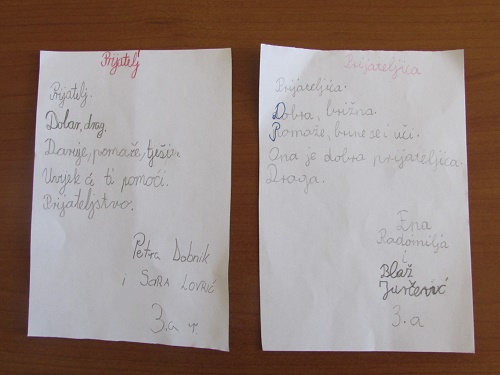 Prijatelj
Prijatelj.
Dobar, drag.
Daruje, pomaže, tješi.
Uvijek će ti pomoći.
Prijateljstvo.
Petra Dobnik
i SARA LOVRIĆ
3.a r.
Prijateljica
Prijateljica.
Dobra, brižna.
Pomaže, brine se i uči.
Ona je dobra prijateljica.
Draga.
Ena
Radomilja
i
Blaž
Jurčević
3.a